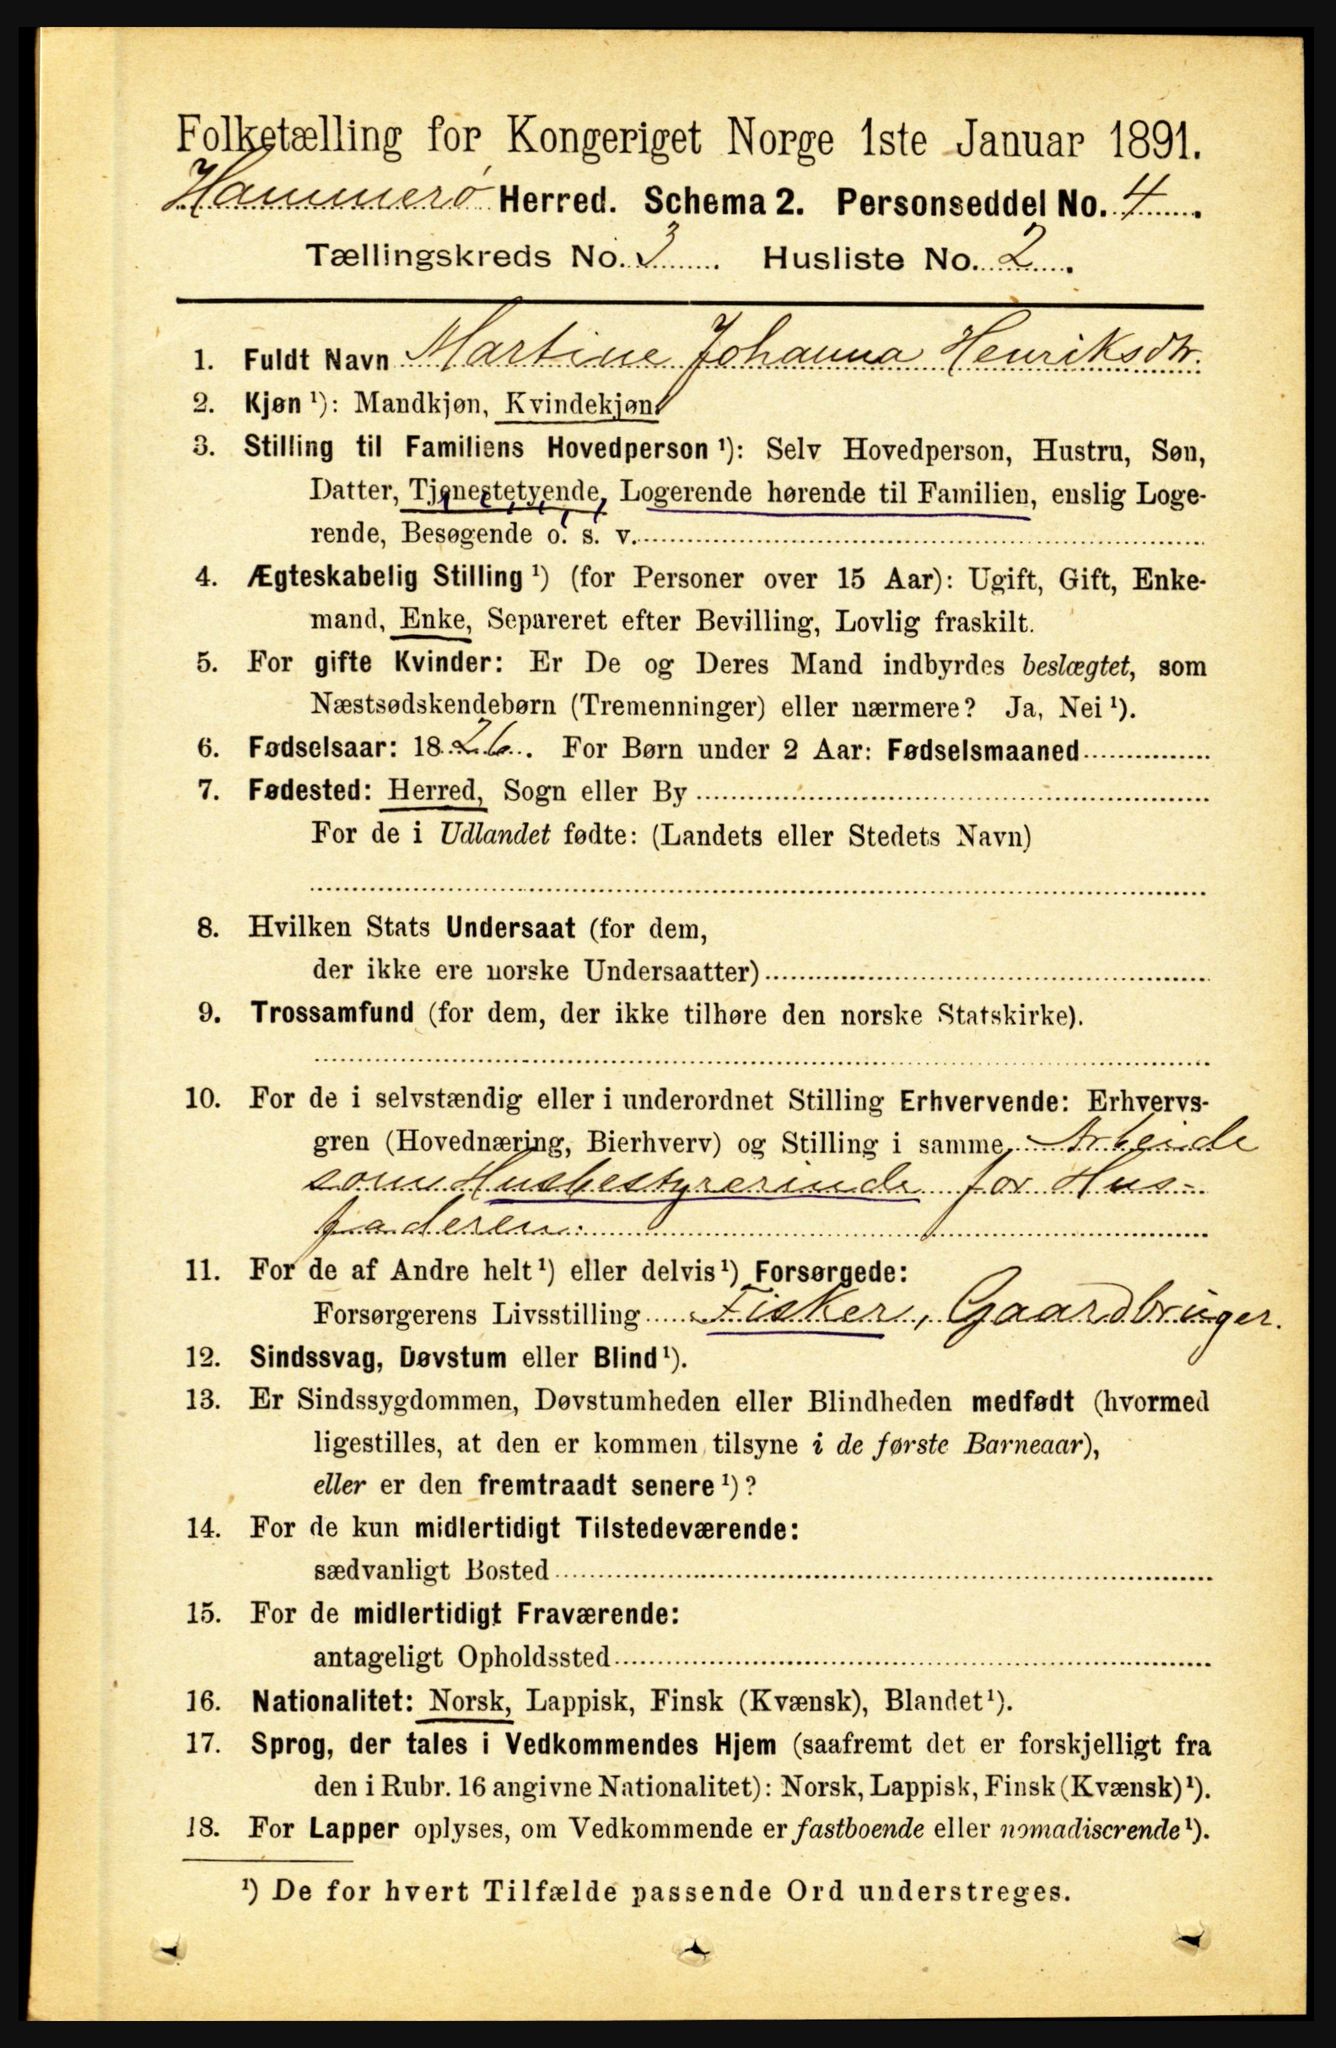 Folketælling for Kongeriget Norge 1ste Januar 1891.
Hammerø Herred. Schema 2. Personseddel No. 4
Tællingskreds No. 3. Husliste No. 2.
1. Fuldt Navn Martine Johanna Henriksdtr.
2. Kjøn ¹): Mandkjøn, Kvindekjøn.
3. Stilling til Familiens Hovedperson ¹): Selv Hovedperson, Hustru, Søn,
Datter, Tjenestetyende, Logerende hørende til Familien, enslig Loge-
rende, Besøgende o. s. v.
4. Ægteskabelig Stilling ¹) (for Personer over 15 Aar): Ugift, Gift, Enke-
mand, Enke, Separeret efter Bevilling, Lovlig fraskilt.
5. For gifte Kvinder: Er De og Deres Mand indbyrdes beslægtet, som
Næstsødskendebørn (Tremenninger) eller nærmere? Ja, Nei ¹).
6. Fødselsaar: 1826. For Børn under 2 Aar: Fødselsmaaned
7. Fødested: Herred, Sogn eller By
For de i Udlandet fødte: (Landets eller Stedets Navn)
8. Hvilken Stats Undersaat (for dem,
der ikke ere norske Undersaatter)
9. Trossamfund (for dem, der ikke tilhøre den norske Statskirke).
10. For de i selvstændig eller i underordnet Stilling Erhvervende: Erhvervs-
gren (Hovednæring, Bierhverv) og Stilling i samme Arbeide
som Husbestyrerinde for Hus-
faderen.
11. For de af Andre helt ¹) eller delvis ¹) Forsørgede:
Forsørgerens Livsstilling Fisker, Gaardbruger.
12. Sindssvag, Døvstum eller Blind ¹).
13. Er Sindssygdommen, Døvstumheden eller Blindheden medfødt (hvormed
ligestilles, at den er kommen tilsyne i de første Barneaar),
eller er den fremtraadt senere ¹)?
14. For de kun midlertidigt Tilstedeværende:
sædvanligt Bosted
15. For de midlertidigt Fraværende:
antageligt Opholdssted
16. Nationalitet: Norsk, Lappisk, Finsk (Kvænsk), Blandet ¹).
17. Sprog, der tales i Vedkommendes Hjem (saafremt det er forskjelligt fra
den i Rubr. 16 angivne Nationalitet): Norsk, Lappisk, Finsk (Kvænsk) ¹).
18. For Lapper oplyses, om Vedkommende er fastboende eller nomadiserende ¹).
¹) De for hvert Tilfælde passende Ord understreges.